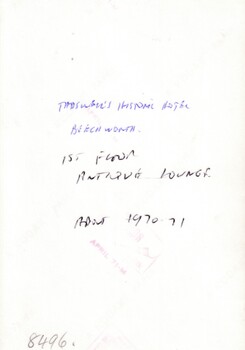 TATTERSALL'S HISTORIC HOTEL
BEECHWORTH.
1ST FLOOR
ANTIQUE LOUNGE
ABOUT 1970-71
8496.